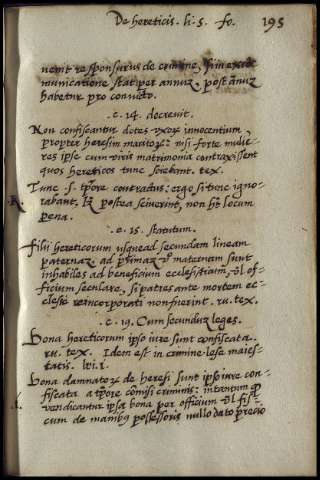 De hereticis. li. 5. fo. 195
uenit responsurus de crimine, si in excō
municatione stat per annuʒ, post ānuʒ
habetur pro conuicto.
.c. 14. decreuit.
Non confiscantur dotes vxorꝝ innocentium
propter heresim maritorꝝ: nisi forte mulie-
res ipse cum viris matrimonia contraxissent
quos hereticos tunc sciebant. tex.
Tunc .s. tp̄ore contractus: ergo si tunc igno-
rabant. postea sciuerint, non hn̄t locum
pena.
.c. 15. statutum.
Filii hereticorum usquead secundam lineam
paternaʒ. ad primaʒ vº maternam sunt
inhabiles ad beneficium ecclesiasticum, vl of-
ficium seculare, si patres ante mortem ec-
clesie reincorporati non fuerint. ru. tex.
.c. 19. Cum secunduʒ leges.
Bona hereticorum ipso iure sunt confiscata.
ru. tex. Idem est in crimine lese maies-
tatis.
Bona damnatorꝝ de heresi sunt ipso iure con-
fiscata a tp̄ore cōmissi criminis: intantum ꝙ
vendicantur ipsa bona per officium vl fis-
cum de manibꝰ possessoris nullo dato precio